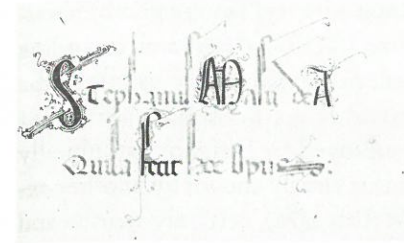 Stephanus de A
Quila fecit hoc opus: